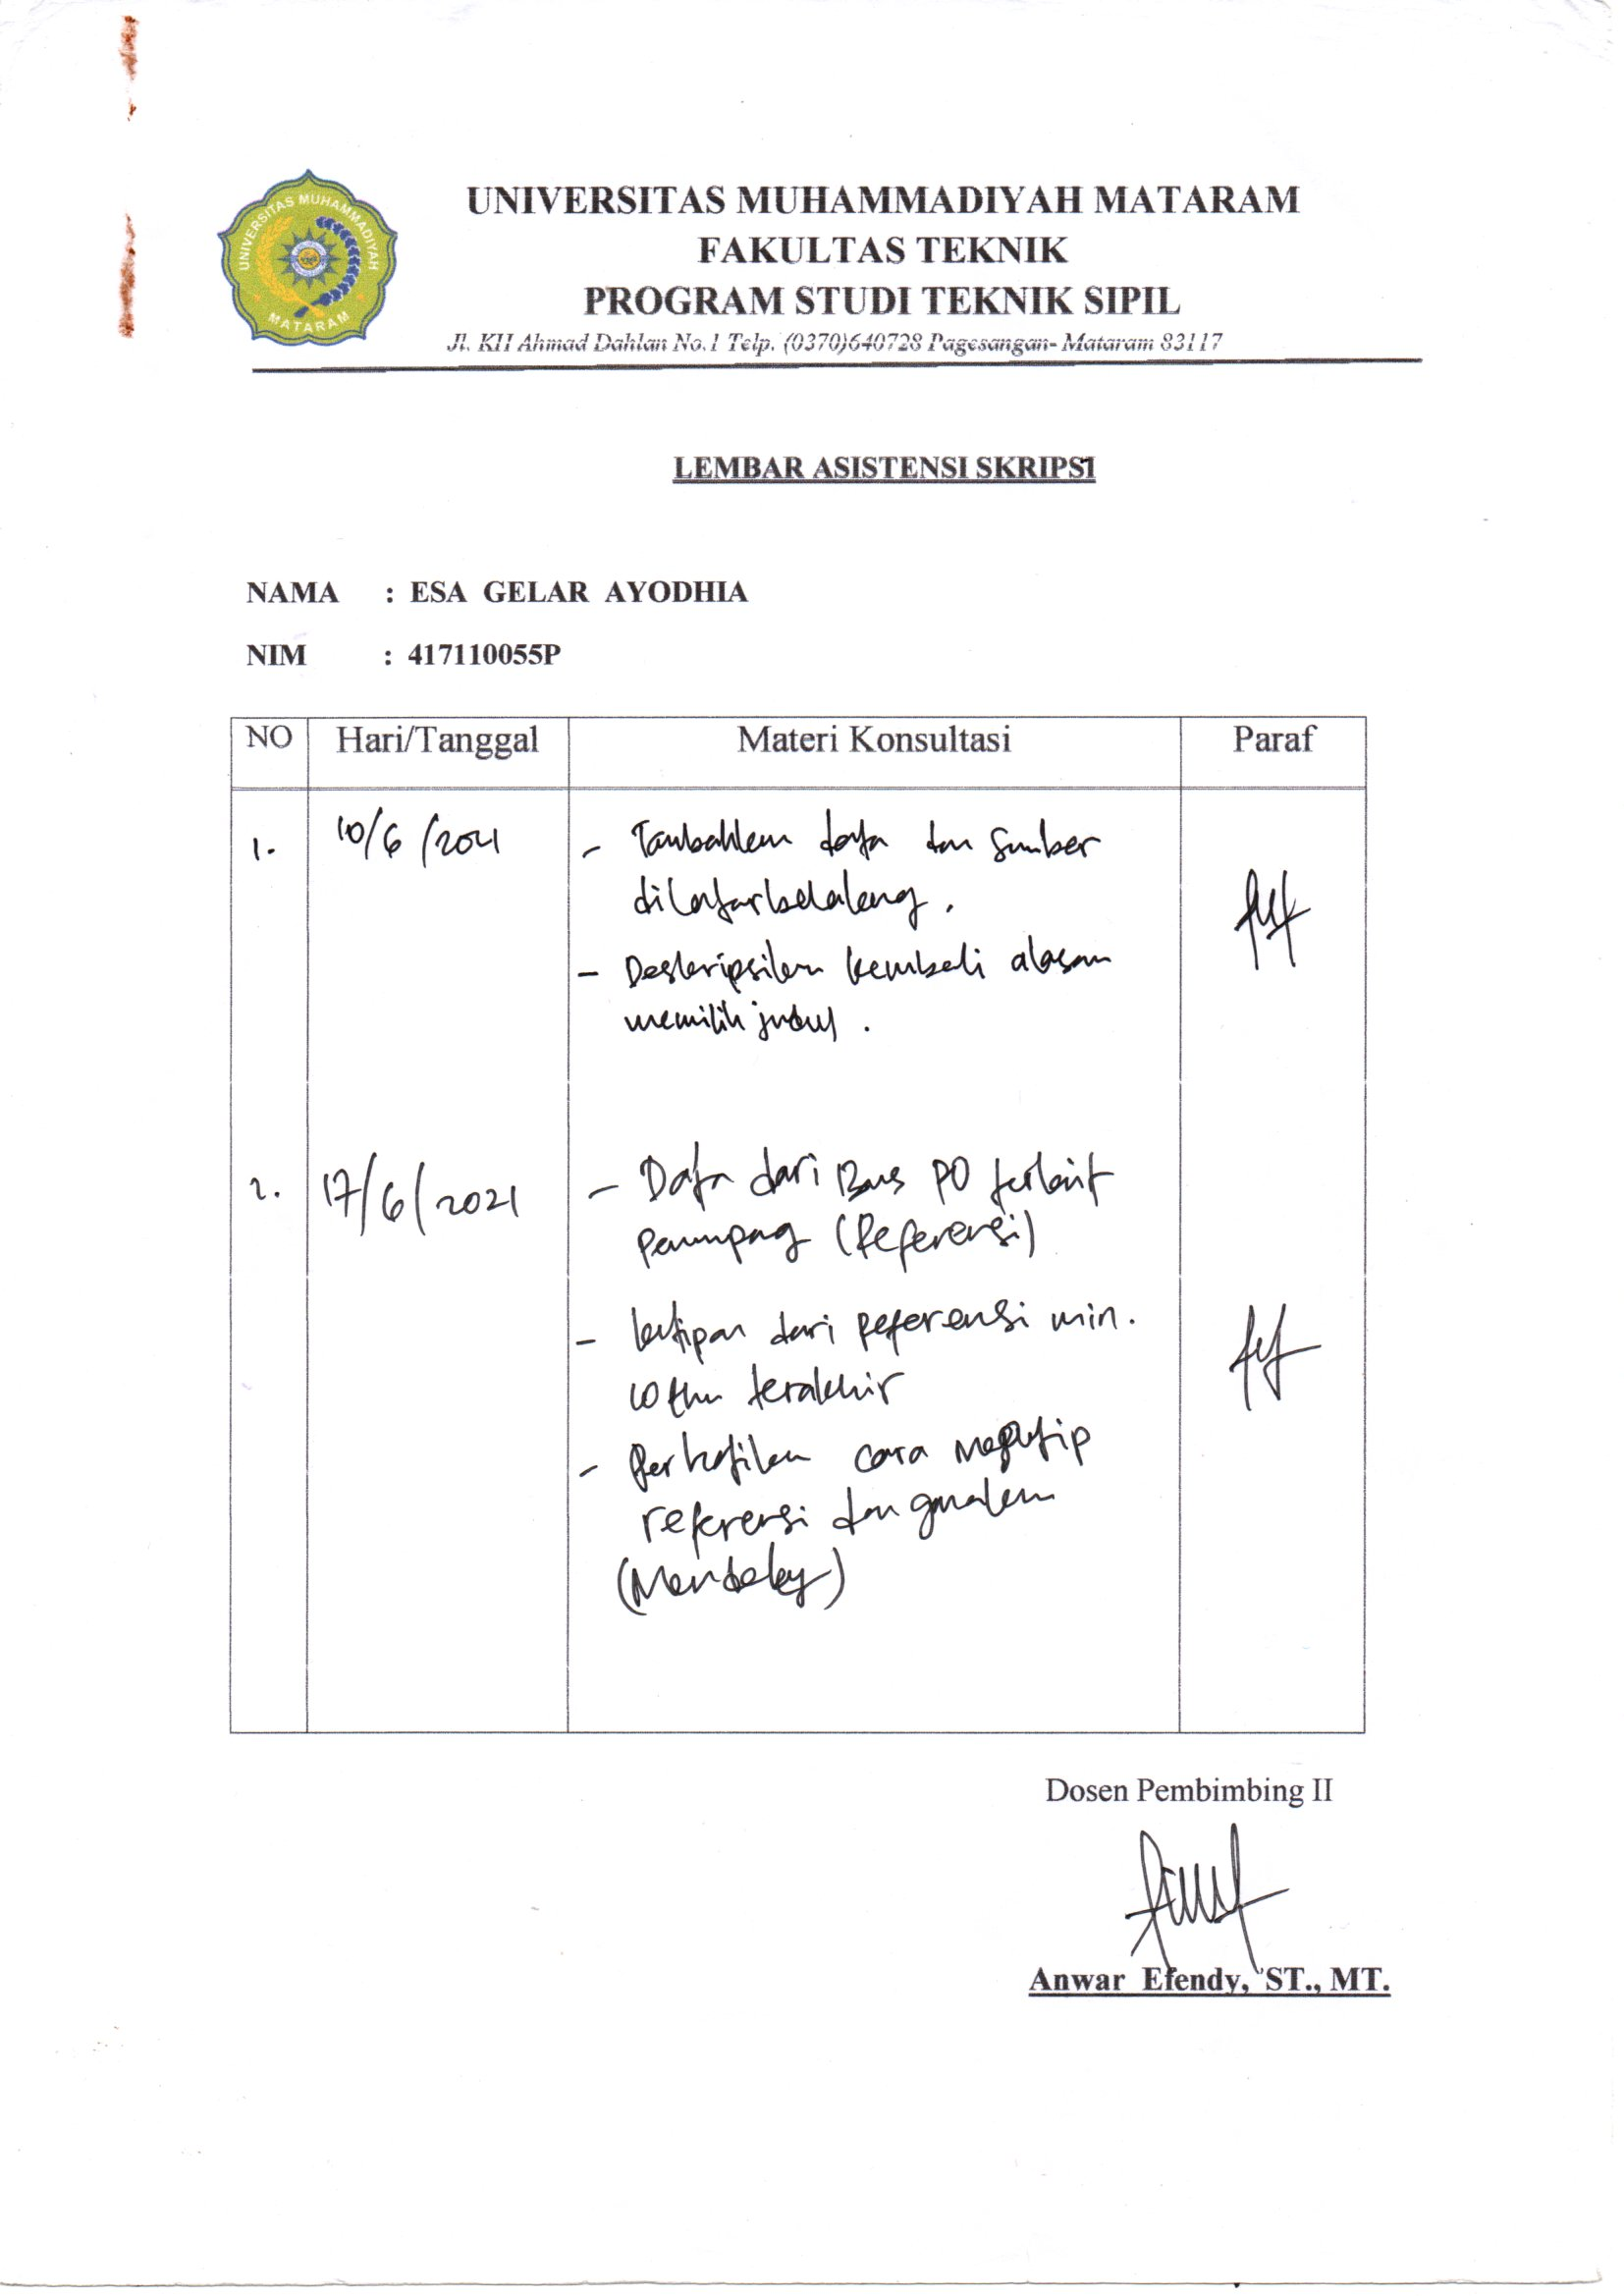 UNIVERSITAS MUHAMMADIYAH MATARAM
UNIVERSITAS MUHAMMADIYAH MATARAM
FAKULTAS TEKNIK
PROGRAM STUDI TEKNIK SIPIL
Jl. KH Ahmad Dahlan No.1 Telp. (0370)640728 Pagesangan- Mataram 83117
LEMBAR ASISTENSI SKRIPSI
NAMA : ESA GELAR AYODHIA
NIM : 417110055P
NO Hari/Tanggal Materi Konsultasi Paraf
1. 10/6/2021 - Tambahkan data dan sumber
dilatarbelakang.
- Deskripsikan kembali alasan
memilih judul.
2. 17/6/2021 - Data dari Bus PO terkait
penumpang (Referensi)
- kutipan dari referensi min.
10 thn terakhir
- Perhatikan cara mengutip
referensi dan gunakan
(Mendeley)
Dosen Pembimbing II
Anwar Efendy, ST., MT.